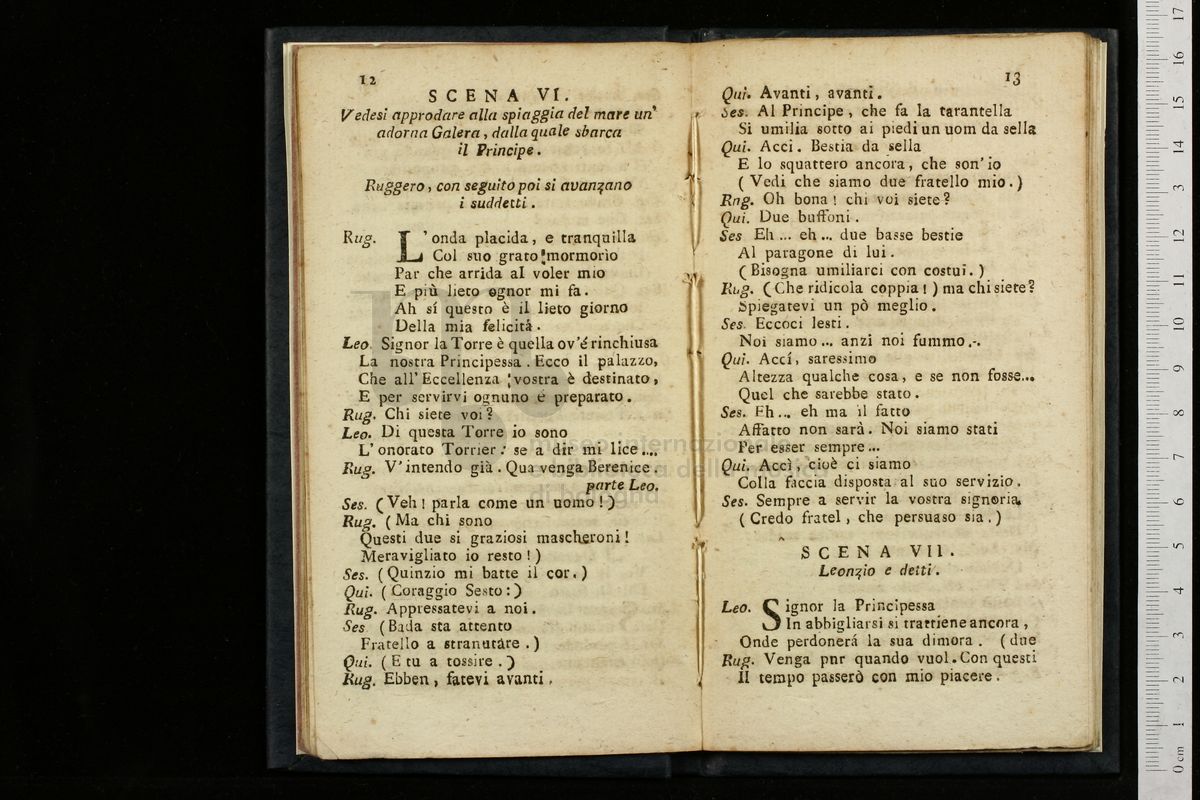 12
SCENA VI.
Vedesi approdare alla spiaggia del mare un'
adorna Galera, dalla quale sbarca
il Principe.
Ruggero, con seguito poi si avanzano
i suddetti.
Rug. L'onda placida, e tranquilla
Col suo grato mormorìo
Par che arrida al voler mio
E più lieto ognor mi fa.
Ah sí questo è il lieto giorno
Della mia felicitá.
Leo. Signor la Torre è quella ov'é rinchiusa
La nostra Principessa. Ecco il palazzo,
Che all'Eccellenza vostra è destinato,
E per servirvi ognuno é preparato.
Rug. Chi siete voi?
Leo. Di questa Torre io sono
L'onorato Torrier: se a dir mi lice....
Rug. V'intendo già. Qua venga Berenice.
parte Leo.
Ses. (Veh! parla come un uomo!)
Rug. (Ma chi sono
Questi due si graziosi mascheroni!
Meravigliato io resto!)
Ses. (Quinzio mi batte il cor.)
Qui. (Coraggio Sesto:)
Rug. Appressatevi a noi.
Ses (Bada sta attento
Fratello a stranutare.)
Qui. (E tu a tossire.)
Rug. Ebben, fatevi avanti.
13
Qui. Avanti, avanti.
Ses. Al Principe, che fa la tarantella
Si umilia sotto ai piedi un uom da sella
Qui. Acci. Bestia da sella
E lo squattero ancora, che son'io
(Vedi che siamo due fratello mio.)
Rng. Oh bona! chi voi siete?
Qui. Due buffoni.
Ses Eh... eh... due basse bestie
Al paragone di lui.
(Bisogna umiliarci con costui.)
Rug. (Che ridicola coppia!) ma chi siete?
Spiegatevi un pò meglio.
Ses. Eccoci lesti.
Noi siamo... anzi noi fummo...
Qui. Accí, saressimo
Altezza qualche cosa, e se non fosse...
Quel che sarebbe stato.
Ses. Eh... eh ma il fatto
Affatto non sarà. Noi siamo stati
Per esser sempre...
Qui. Accì, cioè ci siamo
Colla faccia disposta al suo servizio.
Ses. Sempre a servir la vostra signoria.
(Credo fratel, che persuaso sia.)
SCENA VII.
Leonzio e detti.
Leo. Signor la Principessa
In abbigliarsi si trattiene ancora,
Onde perdonerá la sua dimora. (due
Rug. Venga pnr quando vuol. Con questi
Il tempo passerò con mio piacere.
museo internazionale
e biblioteca della musica
di bologna
0 cm 1 2 3 4 5 6 7 8 9 10 11 12 13 14 15 16 17